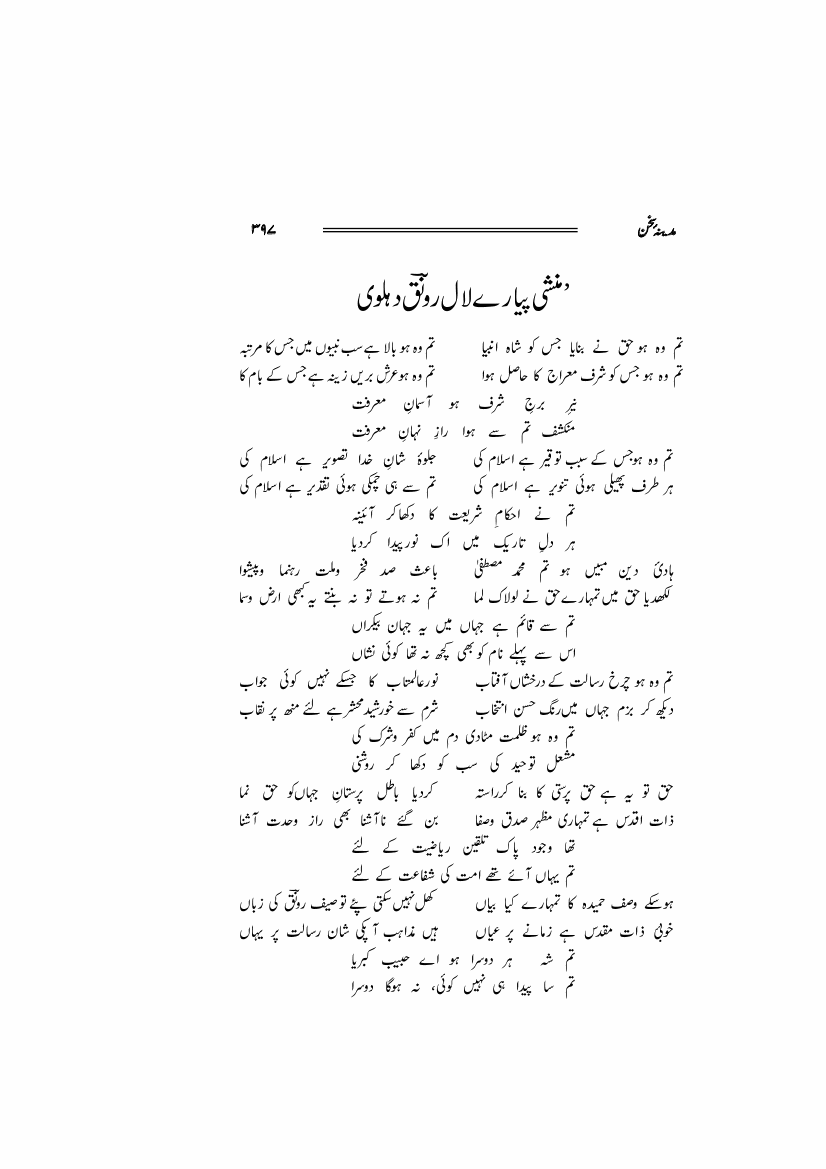 مدینہ سخن ۳۹۷
’منشی پیارے لال رونقؔ دہلوی
تم وہ ہو حق نے بنایا جس کو شاہ انبیا تم وہ ہو بالا ہے سب نبیوں میں جس کا مرتبہ
تم وہ ہو جس کو شرف معراج کا حاصل ہوا تم وہ ہو عرش بریں زینہ ہے جس کے بام کا
نیرِ برجِ شرف ہو آسمانِ معرفت
منکشف تم سے ہوا رازِ نہانِ معرفت
تم وہ ہو جس کے سبب توقیر ہے اسلام کی جلوۂ شانِ خدا تصویر ہے اسلام کی
ہر طرف پھیلی ہوئی تنویر ہے اسلام کی تم سے ہی چمکی ہوئی تقدیر ہے اسلام کی
تم نے احکامِ شریعت کا دکھا کر آئینہ
ہر دلِ تاریک میں اک نور پیدا کردیا
ہادیٔ دین مبیں ہو تم محمد مصطفیٰ باعث صد فخر وملت رہنما وپیشوا
لکھدیا حق میں تمہارے حق نے لولاک لما تم نہ ہوتے تو نہ بنتے یہ کبھی ارض وسما
تم سے قائم ہے جہاں میں یہ جہان بیکراں
اس سے پہلے نام کو بھی کچھ نہ تھا کوئی نشاں
تم وہ ہو چرخ رسالت کے درخشاں آفتاب نور عالمتاب کا جسکے نہیں کوئی جواب
دیکھ کر بزم جہاں میں رنگ حسن انتخاب شرم سے خورشید محشر ہے لئے منھ پر نقاب
تم وہ ہو ظلمت مٹادی دم میں کفر وشرک کی
مشعل توحید کی سب کو دکھا کر روشنی
حق تو یہ ہے حق پرستی کا بنا کر راستہ کردیا باطل پرستانِ جہاں کو حق نما
ذات اقدس ہے تمہاری مظہر صدق وصفا بن گئے ناآشنا بھی راز وحدت آشنا
تھا وجود پاک تلقین ریاضیت کے لئے
تم یہاں آئے تھے امت کی شفاعت کے لئے
ہوسکے وصف حمیدہ کا تمہارے کیا بیاں کھل نہیں سکتی پئے توصیف رونقؔ کی زباں
خوبیٔ ذات مقدس ہے زمانے پر عیاں ہیں مذاہب آپکی شان رسالت پر یہاں
تم شہ ہر دوسرا ہو اے حبیب کبریا
تم سا پیدا ہی نہیں کوئی، نہ ہوگا دوسرا